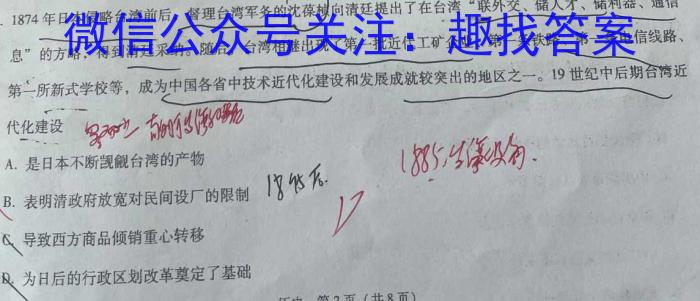 1874 年日本侵略台湾前后，督理台湾军务的沈葆桢向清廷提出了在台湾“联外交、储人才、储利器、通信
微信公众号关注：趣找答案
息”的方略，得到清廷采纳。随后，台湾相继出现了第一批近代工矿企业、第一条铁路、第一条电信线路、
第一所新式学校等，成为中国各省中技术近代化建设和发展成就较突出的地区之一。19 世纪中后期台湾近
代化建设
1885，台湾设省.
A. 是日本不断觊觎台湾的产物
B. 表明清政府放宽对民间设厂的限制
1895后.
C. 导致西方商品倾销重心转移
D. 为日后的行政区划改革奠定了基础
历史 第2页（共8页）